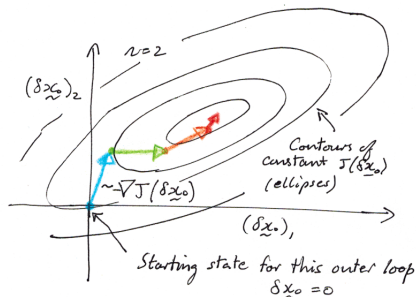 n=2
(δx₀)₂
Contours of
constant J(δx₀)
(ellipses)
~-∇J(δx₀)
(δx₀)₁
Starting state for this outer loop
δx₀ = 0